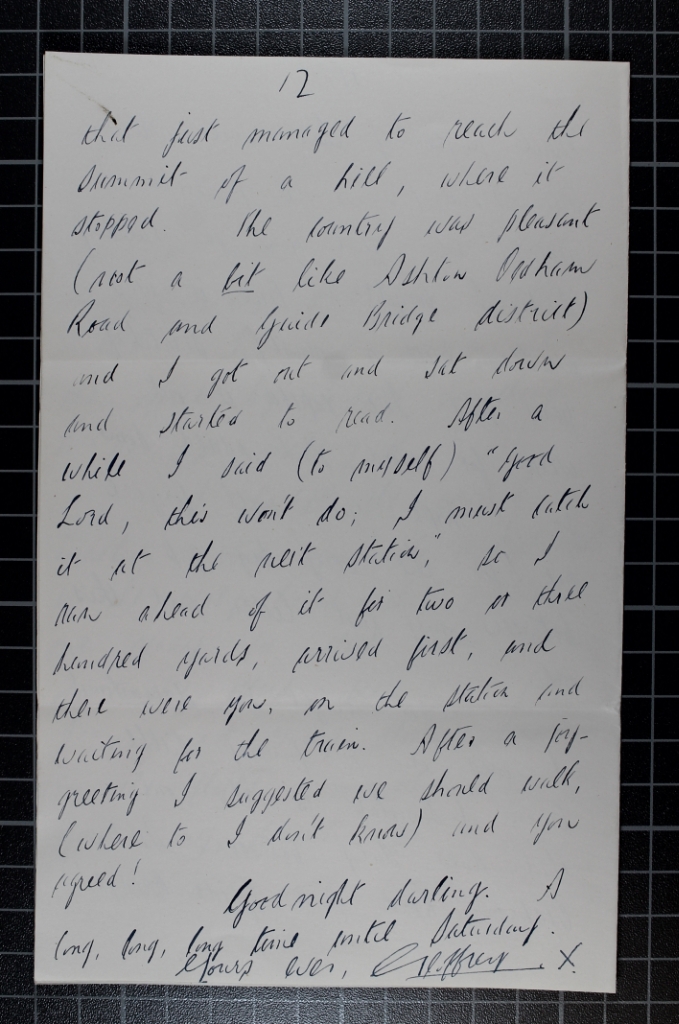 12
that just managed to reach the
summit of a hill, where it
stopped. The country was pleasant
(not a bit like Ashton Oldham
Road and Guide Bridge district)
and I got out and sat down
and started to read. After a
while I said (to myself) "Good
Lord, this won't do; I must catch
it at the next station," so I
ran ahead of it for two or three
hundred yards, arrived first, and
there were you, on the station and
waiting for the train. After a joy-
greeting I suggested we should walk,
(where to I don't know) and you
agreed!
Goodnight darling. A
long, long, long time until Saturday.
Yours ever, Geoffrey X.